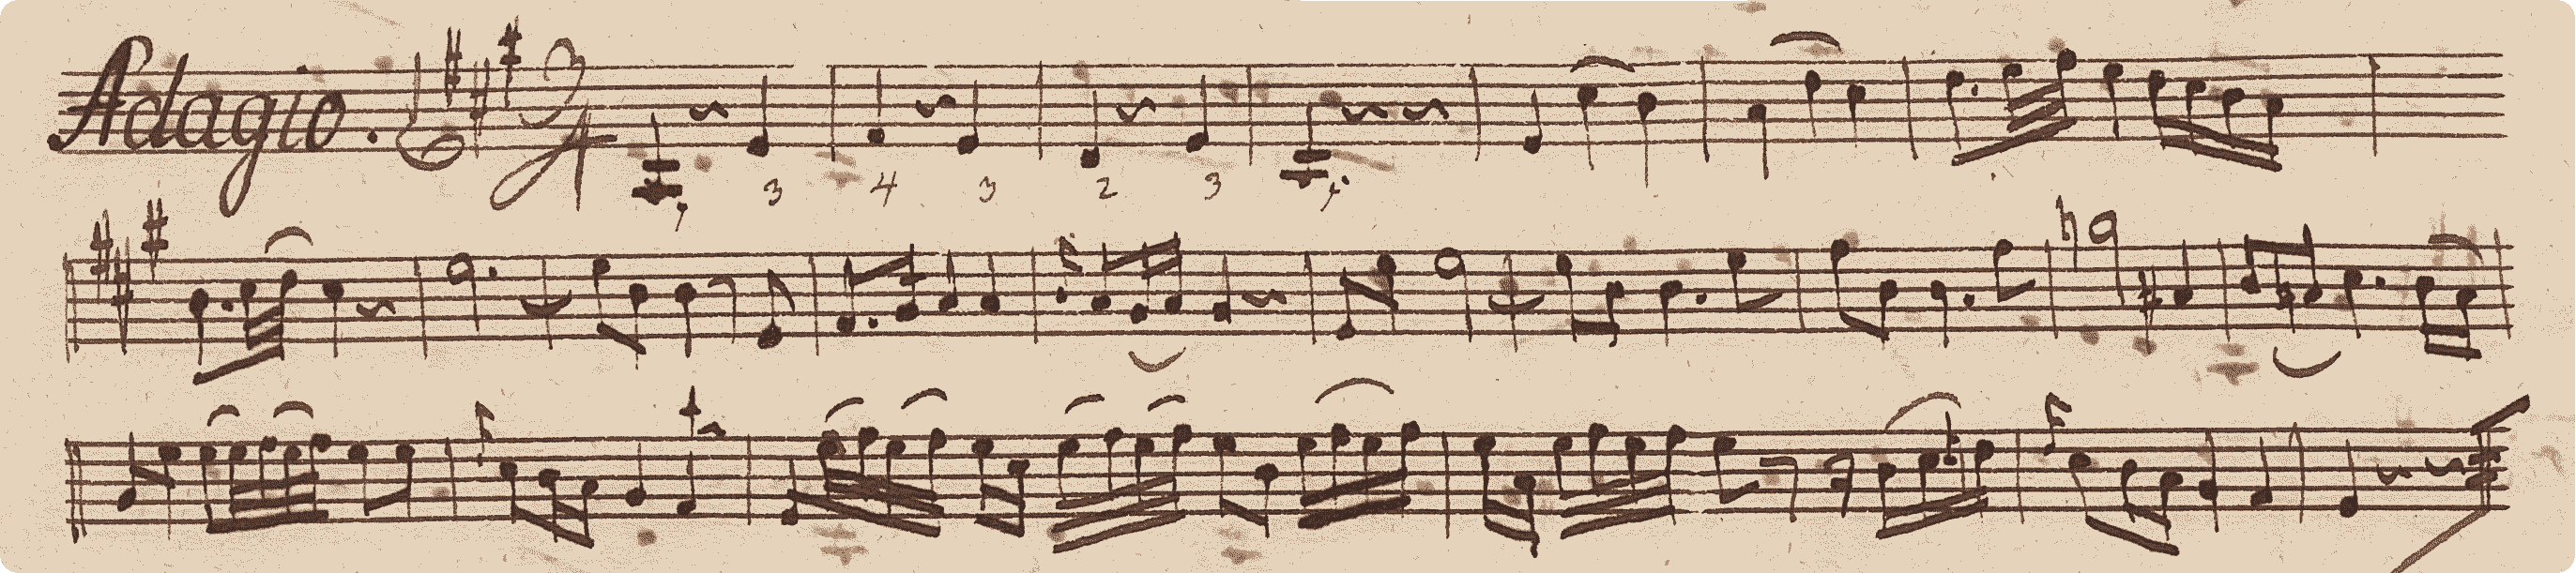 Adagio.
3 4 3 2 3